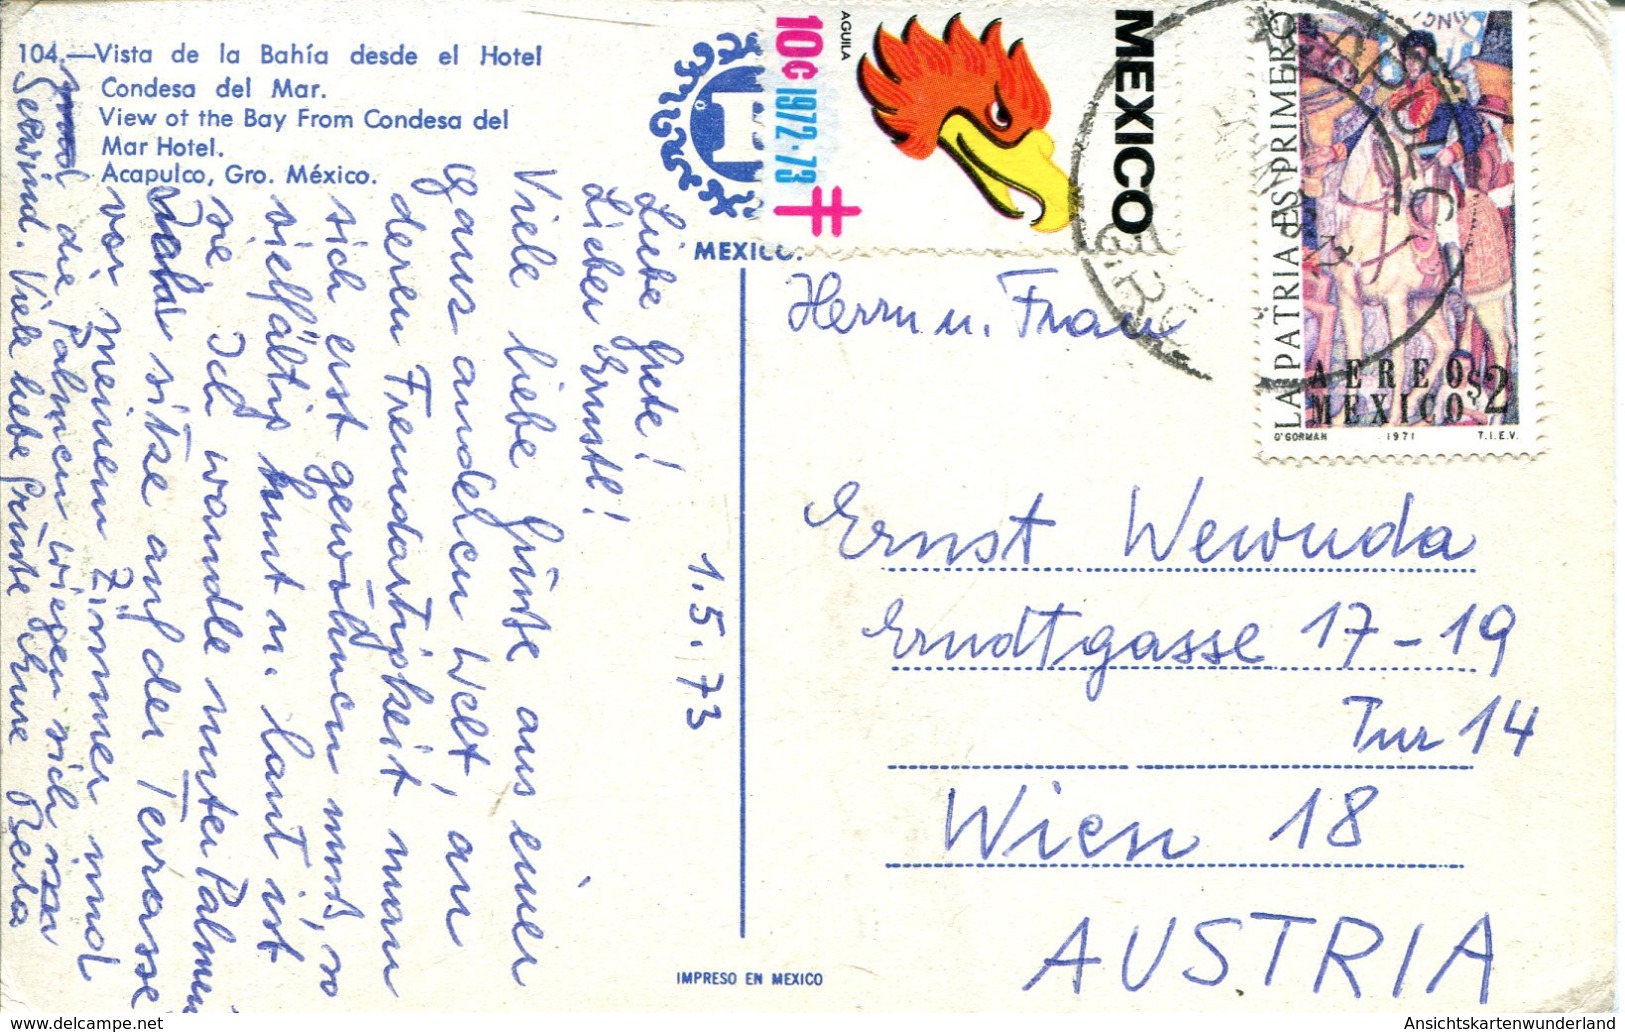 104.—Vista de la Bahía desde el Hotel
Condesa del Mar.
View of the Bay From Condesa del
Mar Hotel.
Acapulco, Gro. México.
MEXICO.
10¢ 1972-73
AGUILA
MEXICO
LA PATRIA ES PRIMERO
AEREO $2
MEXICO
O'GORMAN 1971 T.I.E.V.
1.5.73
Liebe Grete!
Lieber Ernstl!
Viele liebe Grüsse aus einer
ganz anderen Welt, an
deren Fremdartigkeit man
sich erst gewöhnen muss, so
vielfältig bunt u. laut ist
sie. Ich wandle unter Palmen
sitze auf der Terrasse
vor meinem Zimmer und
die Palmen wiegen sich im
Seewind. Viele liebe Grüsse Eure
Herrn u. Frau
Ernst Wewuda
Erndtgasse 17-19
Tür 14
Wien 18
AUSTRIA
IMPRESO EN MEXICO
AnsichtskartenWunderland